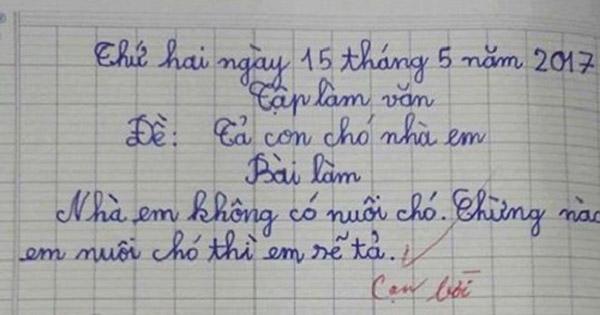 Thứ hai ngày 15 tháng 5 năm 2017
Tập làm văn
Đề: Tả con chó nhà em
Bài làm
Nhà em không có nuôi chó. Chừng nào
em nuôi chó thì em sẽ tả.
Cạn lời